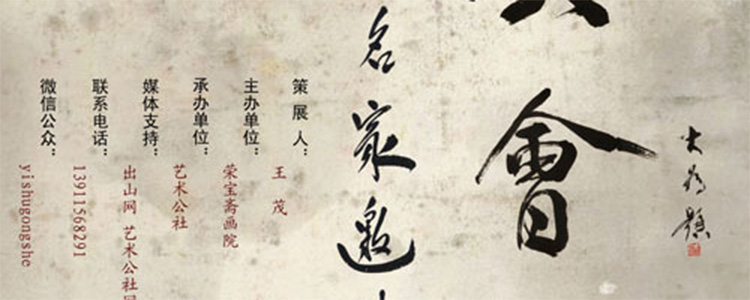 會
大为题
名家邀
策展人：王茂
主办单位：荣宝斋画院
承办单位：艺术公社
媒体支持：出山网 艺术公社网
联系电话：13911568291
微信公众：yishugongshe